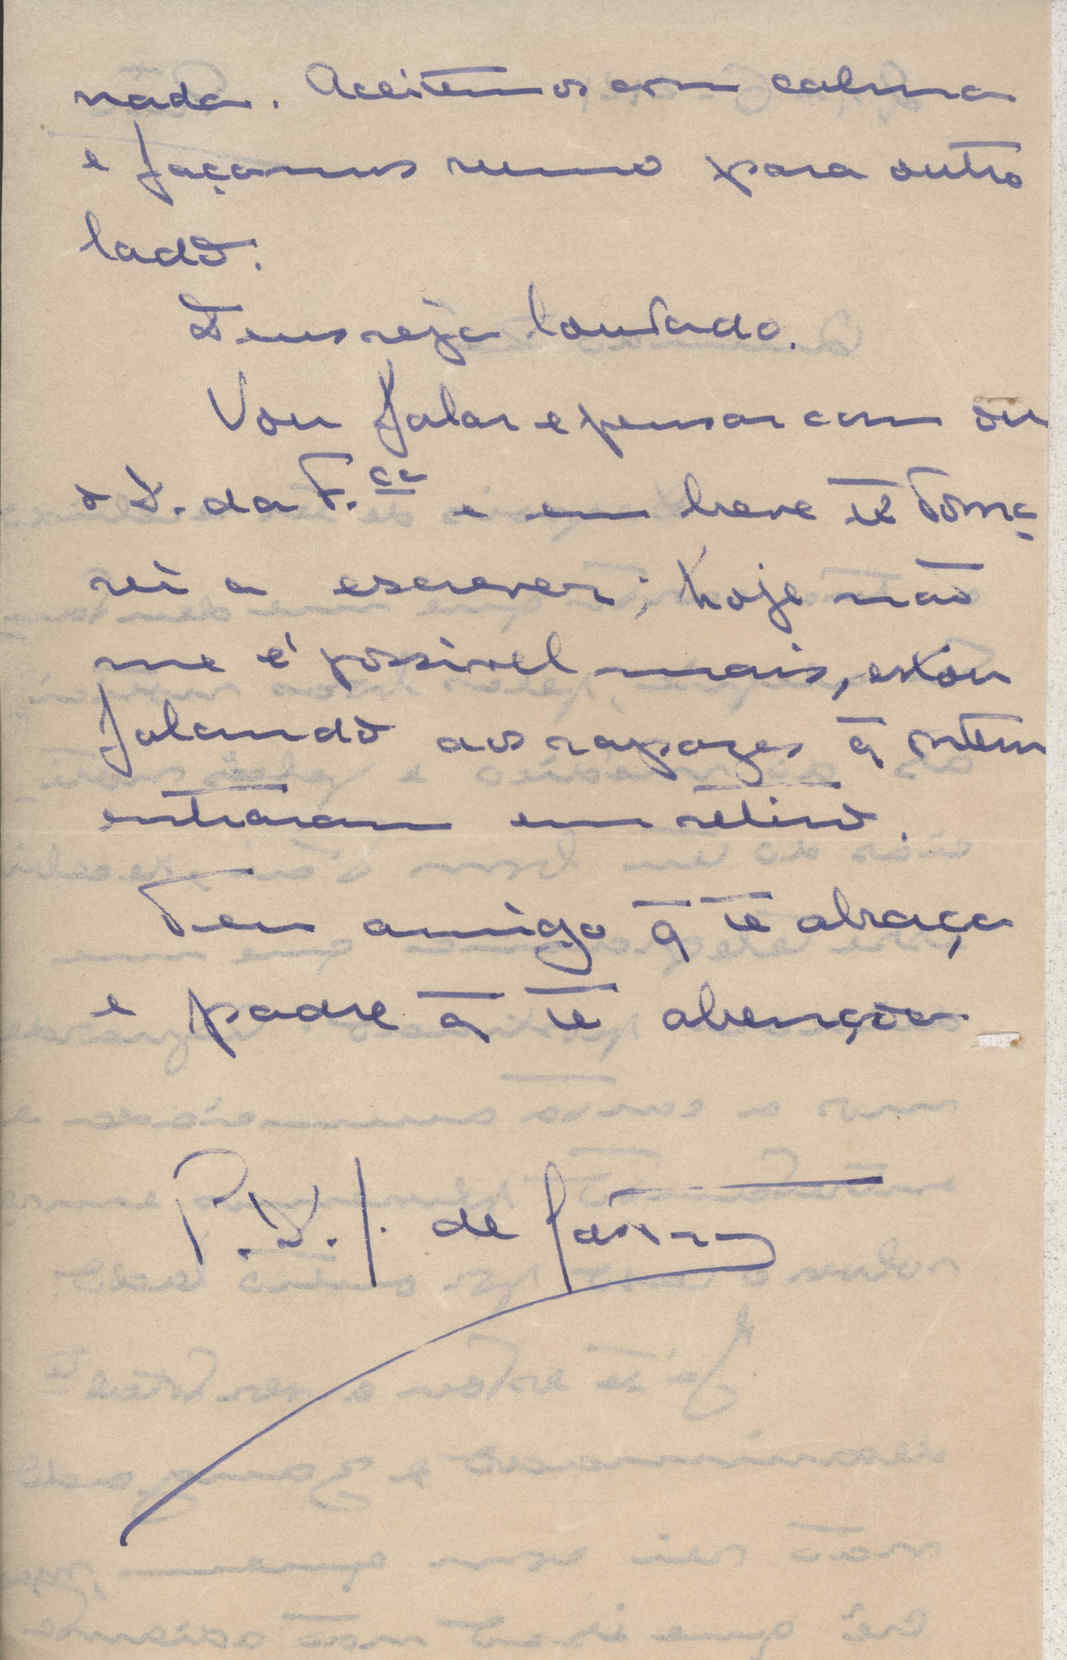 nada. Aceitemos com calma
e façamos rumo para outro
lado.
Deus seja louvado.
Vou falar e pensar com ou
o D. da F.ca e em breve te torna
rei a escrever; hoje não
me é possivel mais, estou
falando aos rapazes q̄ ontem
entraram em retiro.
Teu amigo q̄ te abraça
e padre q̄ te abençoa
P. D. J. de